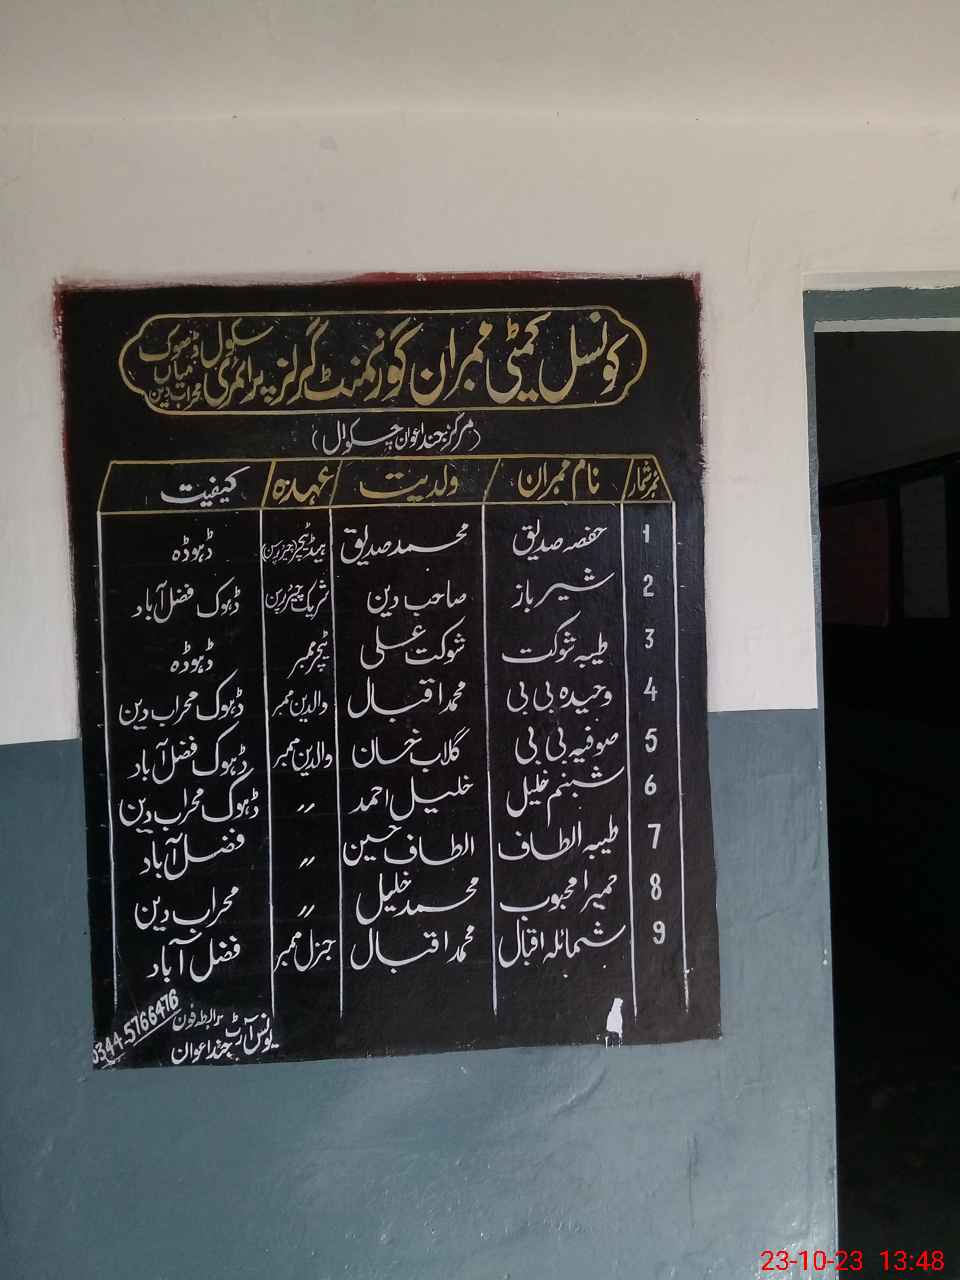 کونسل کمیٹی ممبران گورنمنٹ گرلز پرائمری سکول ڈھوک میاں محراب دین
(مرکز جنداعوان چکوال)
نمبر شمار نام ممبران ولدیت عہدہ کیفیت
1 حفصہ صدیق محمد صدیق ہیڈ ٹیچر (چیئرپرسن) ڈہوڈہ
2 شیر باز صاحب دین شریک چیئرپرسن ڈہوک فضل آباد
3 طیبہ شوکت شوکت علی ٹیچر ممبر ڈہوڈہ
4 وحیدہ بی بی محمد اقبال والدین ممبر ڈہوک محراب دین
5 صوفیہ بی بی گلاب خان والدین ممبر ڈہوک فضل آباد
6 شبنم خلیل خلیل احمد ,, ڈہوک محراب دین
7 طیبہ الطاف الطاف حسین ,, فضل آباد
8 حمیرا محبوب محمد خلیل ,, محراب دین
9 شمائلہ اقبال محمد اقبال جنرل ممبر فضل آباد
رابطہ فون 0344-5766476
یونس آرٹ جنداعوان
23-10-23 13:48